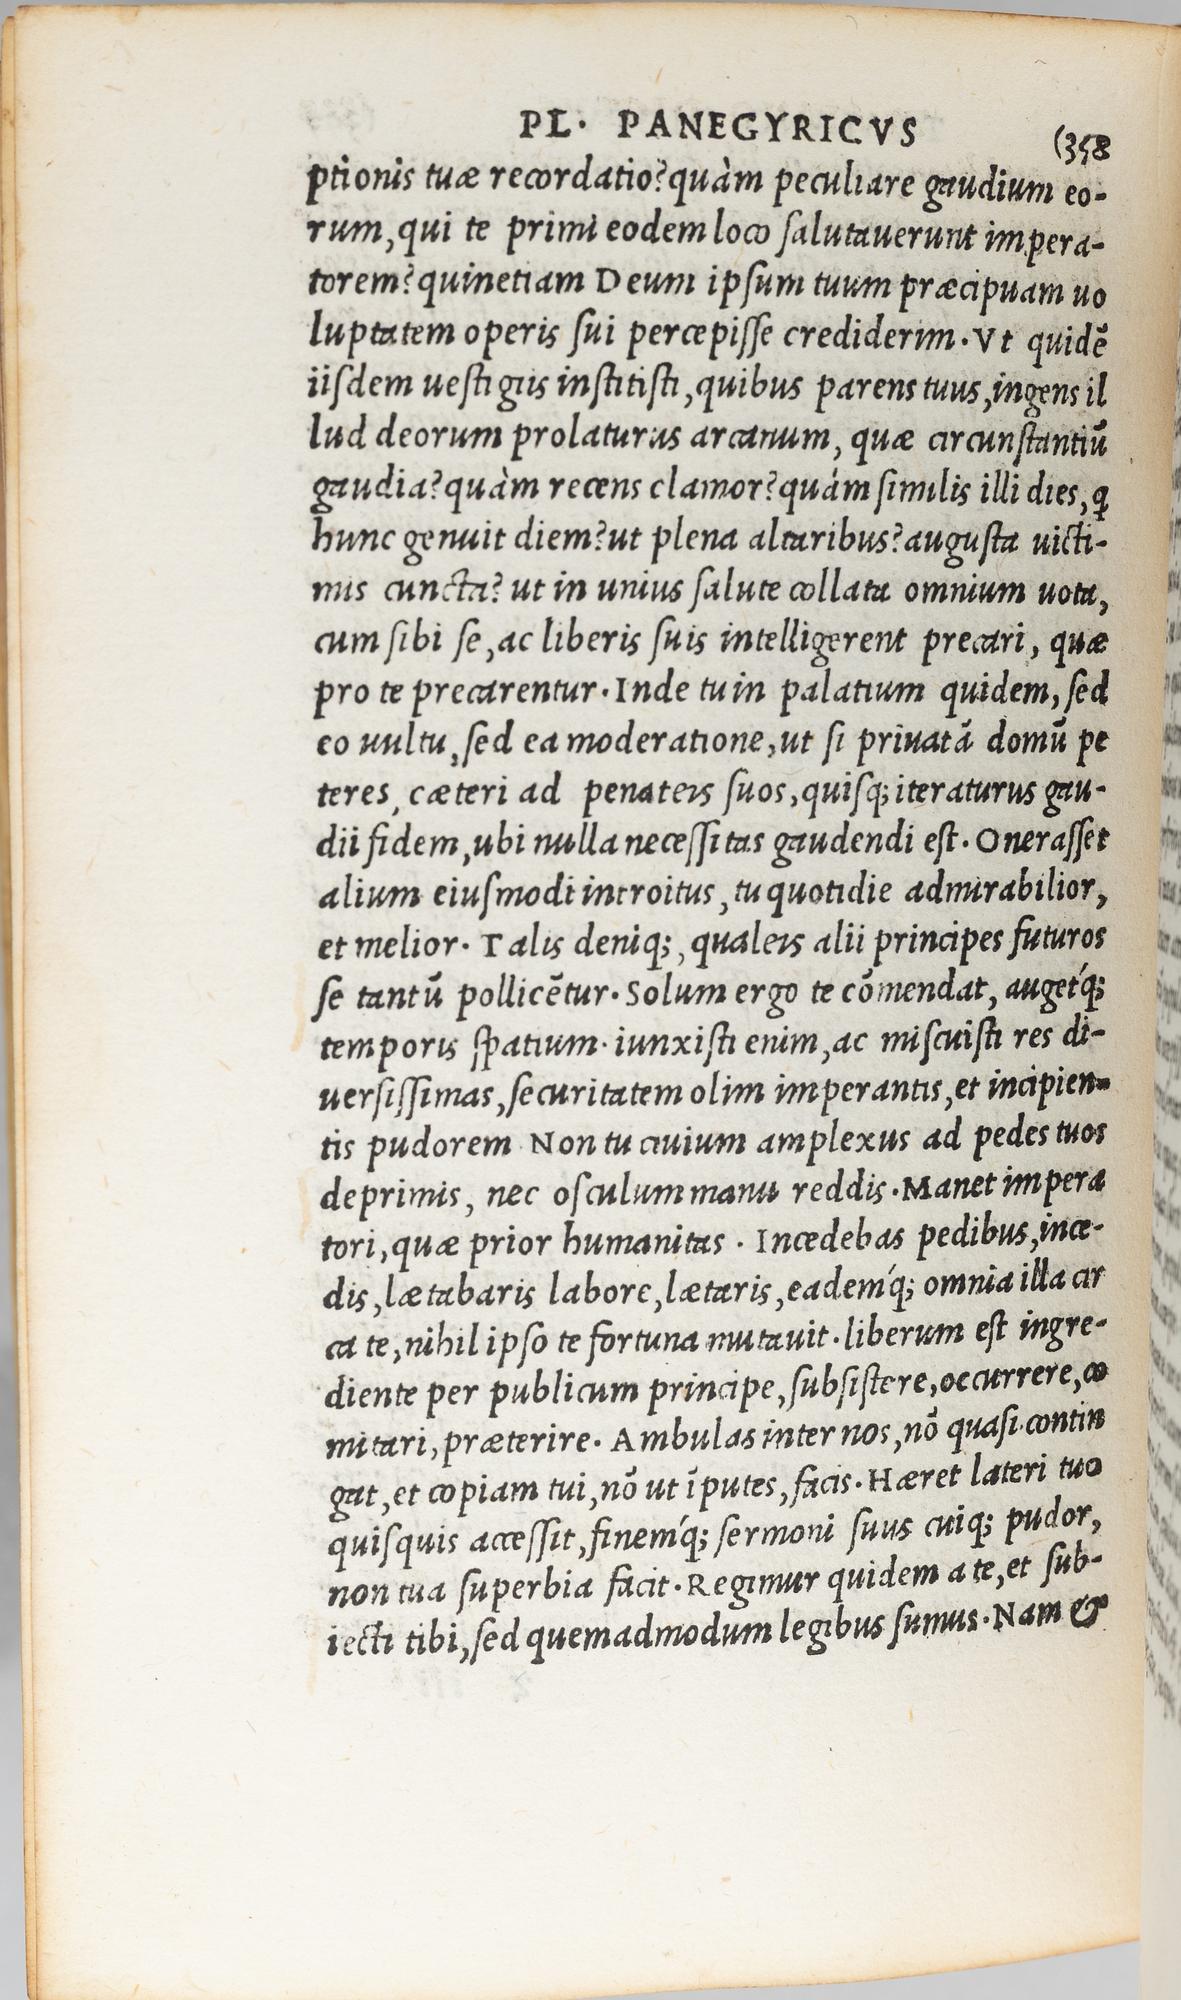 PL. PANEGYRICVS (358
ptionis tuæ recordatio? quàm peculiare gaudium eo-
rum, qui te primi eodem loco ſalutauerunt impera-
torem? quinetiam Deum ipſum tuum præcipuam uo
luptatem operis ſui percepiſſe crediderim. Vt quidē
iiſdem ueſtigiis inſtitiſti, quibus parens tuus, ingens il
lud deorum prolaturus arcanum, quæ circunſtantiū
gaudia? quàm recens clamor? quàm ſimilis illi dies, ꝗ
hunc genuit diem? ut plena altaribus? auguſta uicti-
mis cuncta? ut in unius ſalute collata omnium uota,
cum ſibi ſe, ac liberis ſuis intelligerent precari, quæ
pro te precarentur. Inde tu in palatium quidem, ſed
eo uultu, ſed ea moderatione, ut ſi priuatā domū pe
teres, cæteri ad penateis ſuos, quiſq; iteraturus gau-
dii fidem, ubi nulla neceſſitas gaudendi eſt. Oneraſſet
alium eiuſmodi introitus, tu quotidie admirabilior,
et melior. Talis deniq;, qualeis alii principes futuros
ſe tantū pollicētur. Solum ergo te cōmendat, auget́q;
temporis ſpatium. iunxiſti enim, ac miſcuiſti res di-
uerſiſſimas, ſecuritatem olim imperantis, et incipien-
tis pudorem Non tu ciuium amplexus ad pedes tuos
deprimis, nec oſculum manu reddis. Manet impera
tori, quæ prior humanitas. Incedebas pedibus, ince-
dis, lætabaris labore, lætaris, eadeḿq; omnia illa cir
ca te, nihil ipſo te fortuna mutauit. liberum eſt ingre-
diente per publicum principe, ſubſiſtere, occurrere, co
mitari, præterire. Ambulas inter nos, nō quaſi contin
gat, et copiam tui, nō ut īputes, facis. Hæret lateri tuo
quiſquis acceſſit, fineḿq; ſermoni ſuus cuiq; pudor,
non tua ſuperbia facit. Regimur quidem a te, et ſub-
iecti tibi, ſed quemadmodum legibus ſumus. Nam &